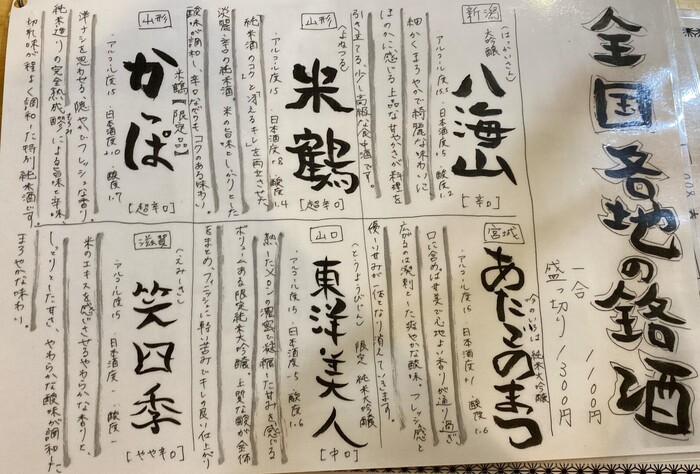 全国各地の銘酒
一合 1100円
盛っ切り 1300円
新潟
八海山
(はっかいさん)
大吟醸
・アルコール度15.5 ・日本酒度 ・酸度1.2
[辛口]
細かくまろやかで綺麗な味わいに
ほのかに感じる上品な甘やかさが料理を
引き立てる、少し高級な食中酒です。
山形
米鶴
(よねつる)
・アルコール度15 ・日本酒度+8 ・酸度1.4
[超辛口]
純米酒のコクと「冴えるキレ」を両立させた
淡麗辛口の純米酒。米の旨味としっかりとした
酸味が調和し、辛口ながらもコクのある味わい
山形
かっぱ
米鶴【限定品】
・アルコール度15 ・日本酒度+10 ・酸度1.7
[超辛口]
洋ナシを思わせる穏やかでフレッシュな香り。
純米造りの完全熟成醪による旨味と辛味
切れ味が程よく調和した特別純米酒です。
宮城
あたごのまつ
今の心地は純米大吟醸
・アルコール度15 ・日本酒度+1 ・酸度1.6
口に含めば甘美で心地よい香りが通り過ぎ
広がるのは溌剌とした爽やかな酸味。フレッシュ感と
優しい甘みが一体となり消えていきます。
山口
東洋美人
(とうようびじん) 限定 純米大吟醸
・アルコール度15 ・日本酒度-5 ・酸度1.6
[中口]
熟したメロンの濃密で凝縮した甘みを感じる
ボリュームある限定純米大吟醸 上質な酸が全体
をまとめ、フィニッシュに軽い苦みでキレの良い仕上がり
滋賀
笑四季
(えみしき)
・アルコール度15 ・日本酒度 - ・酸度 -
[やや辛口]
米のエキスを感じさせるやわらかな香りと、
しっとりとした甘さ、やわらかな酸味が調和した
まろやかな味わい。